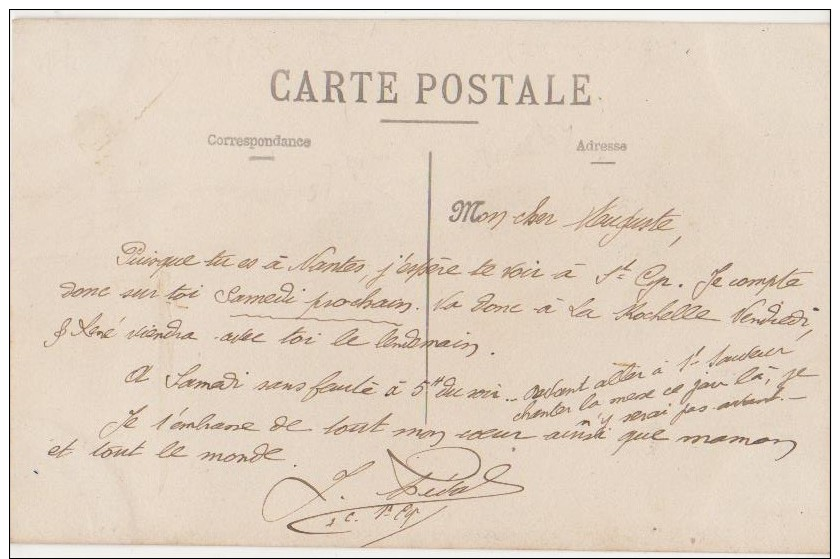 CARTE POSTALE
Correspondance
Adresse
Mon cher Auguste,
Puisque tu es à Nantes, j'espère te voir à St Cyr. Je compte
donc sur toi Samedi prochain. Va donc à La Rochelle Vendredi,
& René viendra avec toi le lendemain.
A Samedi sans faute à 5H du soir... devant aller à St Sauveur
chanter la messe ce jour là, je
n'y serai pas avant.-
Je t'embrasse de tout mon cœur ainsi que maman
et tout le monde.
J.
c. St Cyr